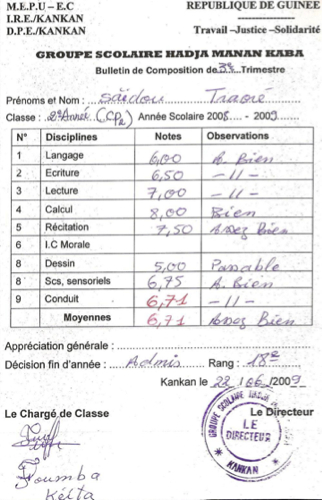 M.E.P.U – E.C REPUBLIQUE DE GUINEE
I.R.E./KANKAN ---------------
D.P.E./KANKAN Travail –Justice –Solidarité
GROUPE SCOLAIRE HADJA MANAN KABA
Bulletin de Composition de 3e Trimestre
Prénoms et Nom : Saïdou Traoré
Classe : 2e Année (CP2) Année Scolaire 2008 - 2009
N° Disciplines Notes Observations
1 Langage 6,00 A. Bien
2 Ecriture 6,50 -//-
3 Lecture 7,00 -//-
4 Calcul 8,00 Bien
5 Récitation 7,50 Assez Bien
6 I.C Morale
8 Dessin 5,00 Passable
8 Scs, sensoriels 6,75 A. Bien
9 Conduit 6,71 -//-
Moyennes 6,71 Assez Bien
Appréciation générale :
Décision fin d'année : Admis Rang : 18e
Kankan le 28/06/2009
Le Chargé de Classe Le Directeur
GROUPE SCOLAIRE HADJA
LE
DIRECTEUR
* KANKAN *
Foumba
Keïta